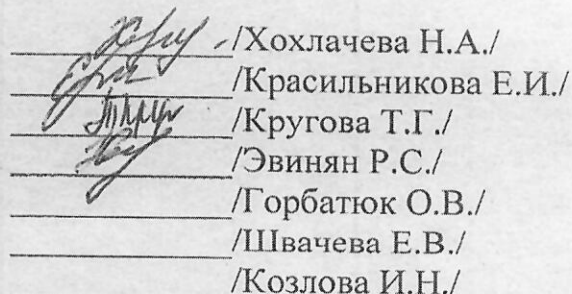 /Хохлачева Н.А./
/Красильникова Е.И./
/Кругова Т.Г./
/Эвинян Р.С./
/Горбатюк О.В./
/Швачева Е.В./
/Козлова И.Н./